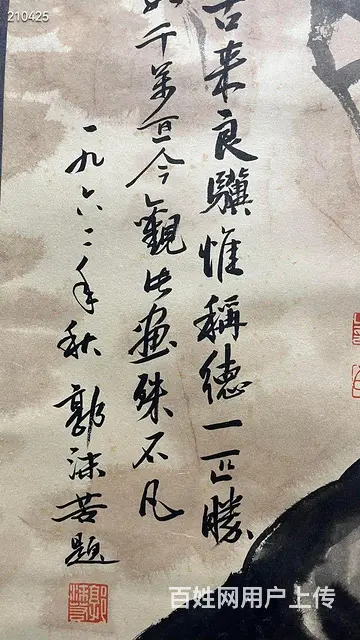 210425
古来良驥惟稱德一匹勝
千萬亘今觀此畫殊不凡
一九六二年秋 郭沫若題
百姓网用户上传